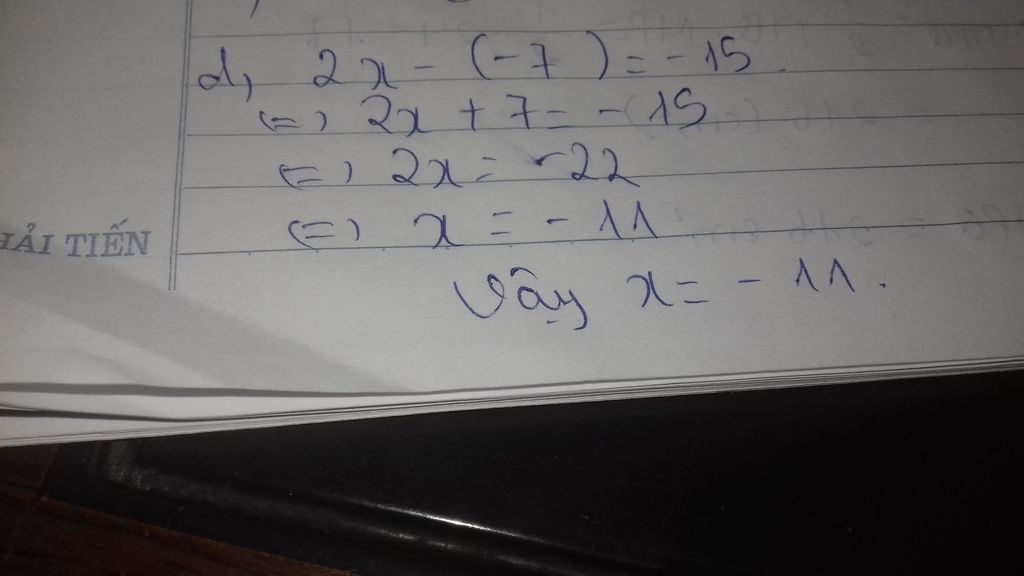 d, 2x - (-7) = -15.
(=) 2x + 7 = -15
(=) 2x = -22
HẢI TIẾN
(=) x = -11
Vậy x = -11.